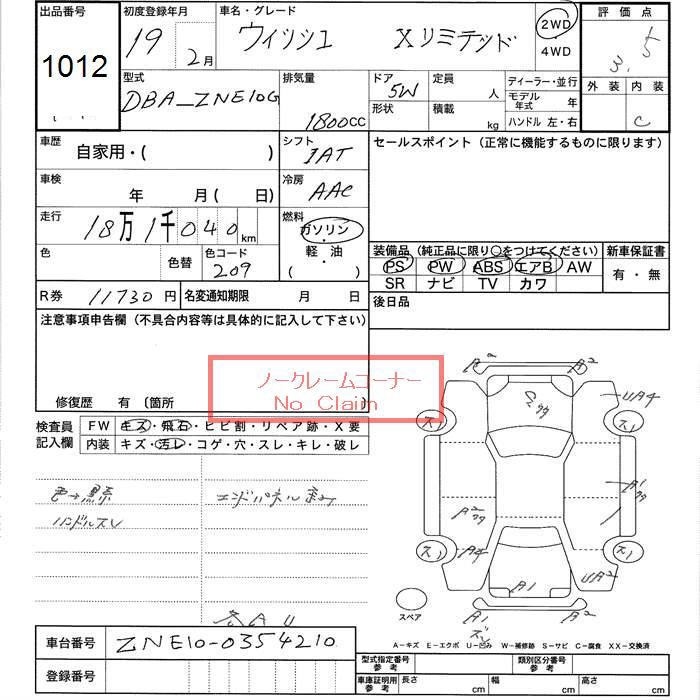 出品番号 初度登録年月 車名・グレード 2WD 評価点
1012 19年2月 ウィッシュ Xリミテッド 4WD 3.5
型式 排気量 ドア 定員 ディーラー・並行 外装 内装
DBA_ZNE10G 1800CC 5W 人 モデル年式 年 C
形状 積載 kg ハンドル 左・右
車歴 自家用・( ) シフト IAT セールスポイント(正常に機能するものに限ります)
車検 年 月( 日) 冷房 AAC
走行 18万1千040km 燃料 ガソリン
軽・油
( )
色 色替 色コード 209
装備品(純正品に限り○をつけてください) 新車保証書
PS PW ABS エアB AW 有・無
SR ナビ TV カワ
R券 11730円 名変通知期限 月 日 後日品
注意事項申告欄(不具合内容等は具体的に記入して下さい)
ノークレームコーナー
No Claim
修復歴 有 〔箇所
検査員 FW キズ・飛石・ヒビ割・リペア跡・X要
記入欄 内装 キズ・汚レ・コゲ・穴・スレ・キレ・破レ
色→黒系 エンドパネル
ハンドルスレ
A2 A2
UA4
A1
A2
A4
UA2
A1
A1 A2
スペア
A-キズ E-エクボ U-凹み W-補修跡 S-サビ C-腐食 XX-交換済
車台番号 ZNE10-0354210
登録番号
型式指定番号 参考 類別区分番号 参考
車庫証明用 参考 長さ cm 幅 cm 高さ cm